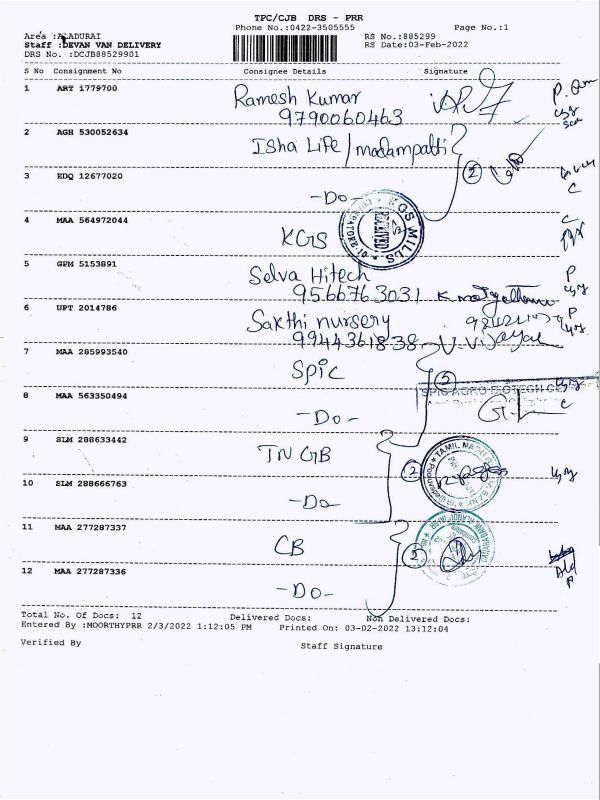 TPC/CJB DRS - PRR
Phone No.:0422-3505555 Page No.:1
Area :ALADURAI RS No.:885299
Staff :DEVAN VAN DELIVERY RS Date:03-Feb-2022
DRS No. :DCJB88529901
S No Consignment No Consignee Details Signature
1 ART 1779700 Ramesh Kumar
9790060463
2 AGH 530052634 Isha Life/madampatti
2
3 EDQ 12677020 -Do-
C
4 MAA 564972044 KGS
KGS MILLS RECEIVED
C
5 GPM 5153891 Selva Hitech P
9566763031
6 UPT 2014786 Sakthi nursery P
9944361838 V. Vijayal
7 MAA 285993540 Spic
SPIC AGRO BIOTECH
8 MAA 563350494 -Do- C
9 SLM 288633442 TN GB
TAMIL NADU
2
10 SLM 288666763 -Do-
11 MAA 277287337 CB
2
12 MAA 277287336 -Do- P
Total No. Of Docs: 12 Delivered Docs: Non Delivered Docs:
Entered By :MOORTHYPRR 2/3/2022 1:12:05 PM Printed On: 03-02-2022 13:12:04
Verified By Staff Signature